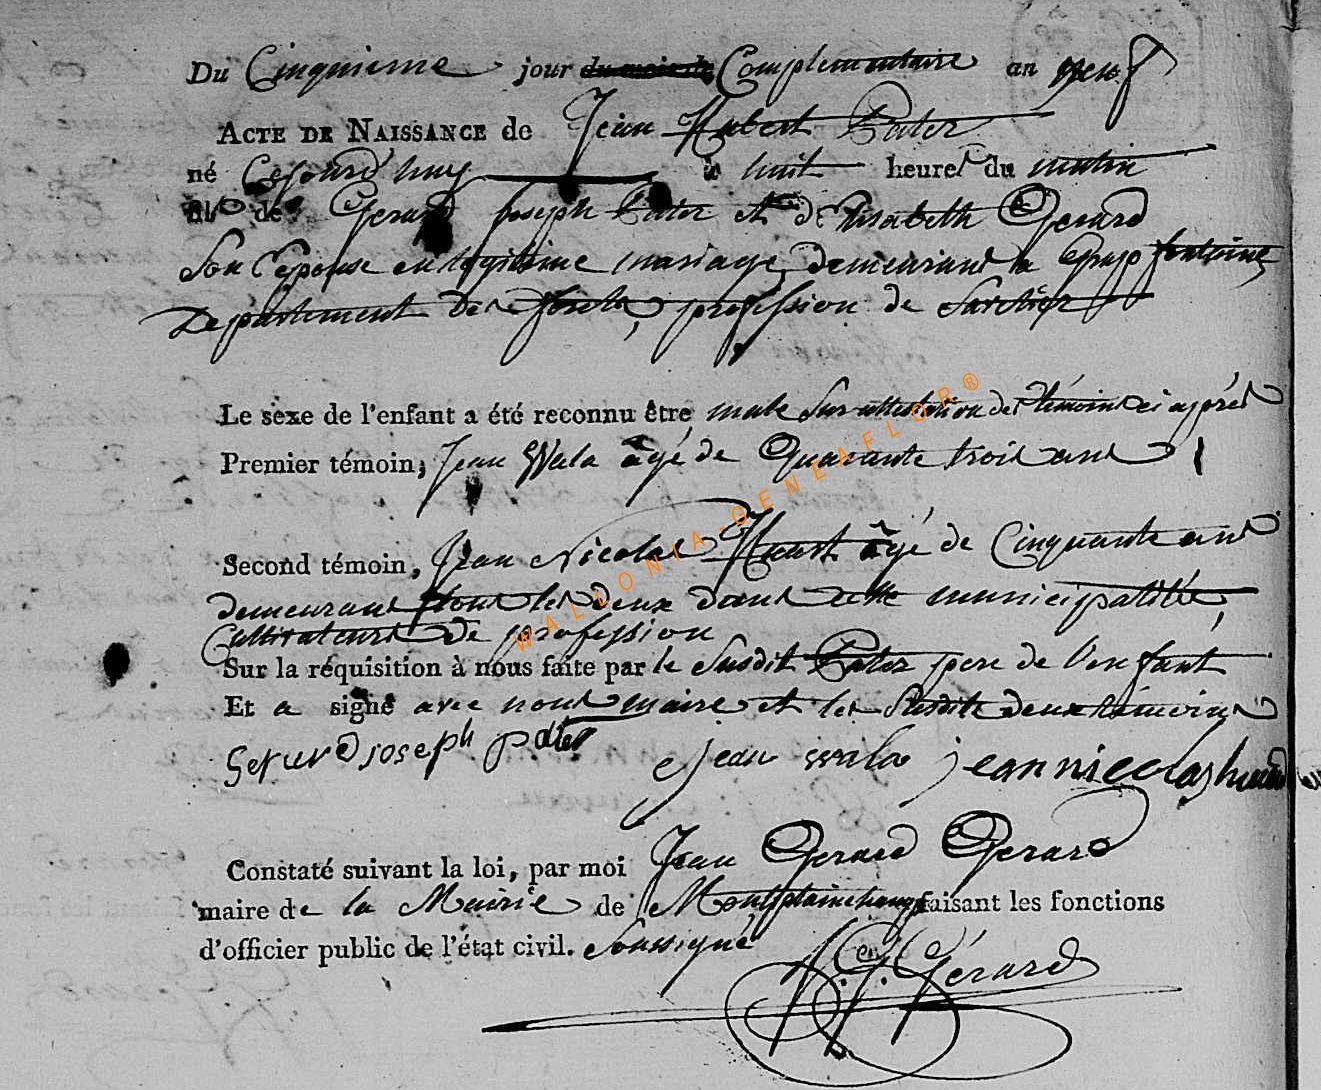 Du Cinquieme jour du mois de Complementaire an neuf
ACTE DE NAISSANCE de Jean Hubert Pater
né Cejourd'huy à huit heures du matin
fils de Gerard Joseph Pater et d'Elisabeth Gerard
Son Epouse en legitime mariage, demeurant a Grapfontaine
Departement des forets, profession de
Le sexe de l'enfant a été reconnu être male Sur attestation des témoins ci après
Premier témoin, Jean Wala âgé de Quarante trois ans
Second témoin, Jean Nicolas Huart âgé de Cinquante ans
demeurans tous les deux dans cette municipalitée,
Cultivateurs de profession
Sur la réquisition à nous faite par le Susdit Pater pere de l'enfant
Et a signé avec nous maire et les Susdits deux témoins
Gerard joseph pater jean wala jean nicolas huart
Constaté suivant la loi, par moi Jean Gerard Gerard
maire de la Mairie de Montplainchamp faisant les fonctions
d'officier public de l'état civil. Soussigné
J. G. Gérard
WALLONIA-GENEAFLOR®